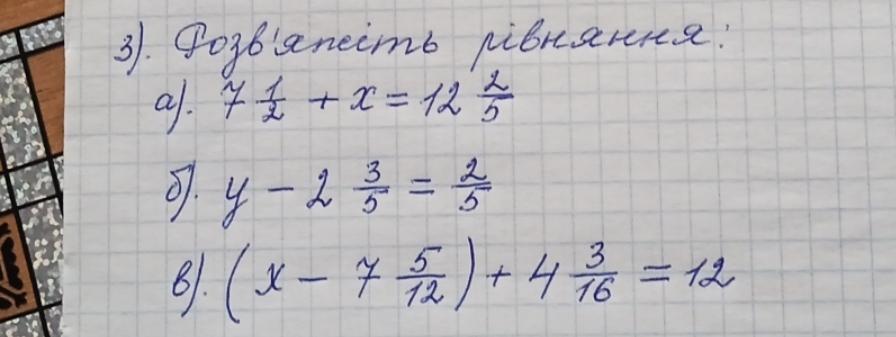 3). Розв'яжіть рівняння:
а). 7 1/2 + x = 12 2/5
б). y - 2 3/5 = 2/5
в). (x - 7 5/12) + 4 3/16 = 12